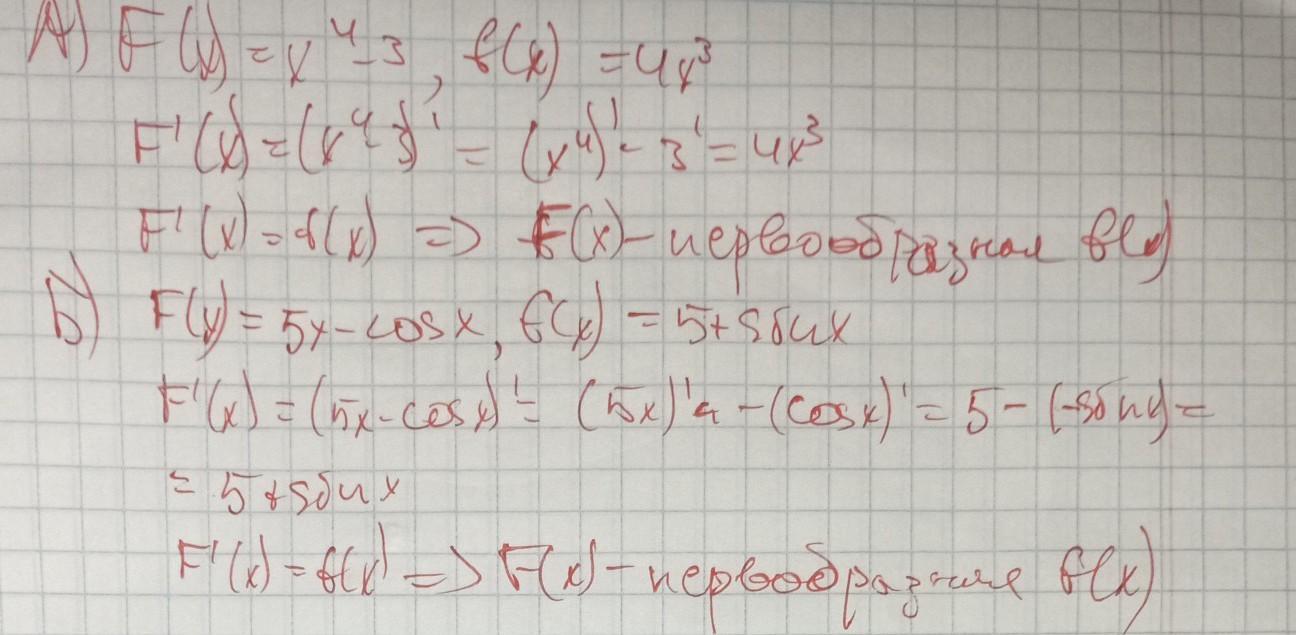 А) F(x) = x⁴ - 3, f(x) = 4x³
F'(x) = (x⁴ - 3)' = (x⁴)' - 3' = 4x³
F'(x) = f(x) => F(x) - первообразная f(x)
Б) F(x) = 5x - cosx, f(x) = 5 + sinx
F'(x) = (5x - cosx)' = (5x)' - (cosx)' = 5 - (-sinx) =
= 5 + sinx
F'(x) = f(x) => F(x) - первообразная f(x)